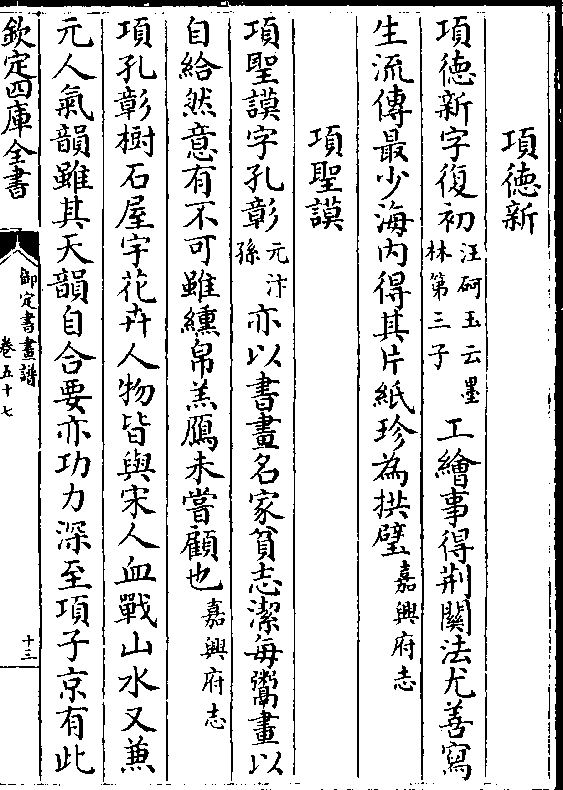 項徳新
項徳新字復初汪砢玉云墨林第三子工繪事得荆關法尤善寫
生流傳最少海内得其片紙珍為拱璧嘉興府志
項聖謨
項聖謨字孔彰元汴孫亦以書畫名家貧志潔每鬻畫以
自給然意有不可雖纁帛羔鴈未嘗顧也嘉興府志
項孔彰樹石屋宇花卉人物皆與宋人血戰山水又兼
元人氣韻雖其天韻自合要亦功力深至項子京有此
欽定四庫全書
御定書畫譜
卷五十七
十三